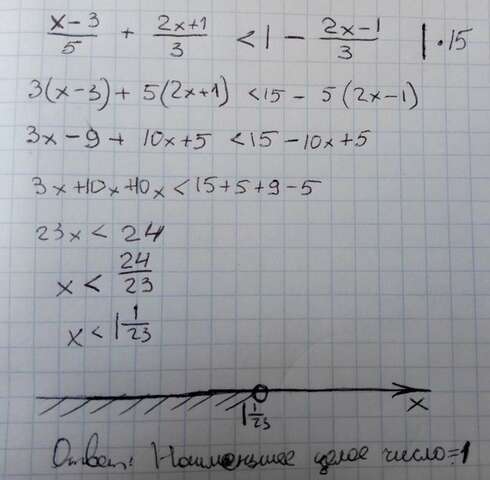 (x-3)/5 + (2x+1)/3 < 1 - (2x-1)/3 | · 15
3(x-3) + 5(2x+1) < 15 - 5(2x-1)
3x - 9 + 10x + 5 < 15 - 10x + 5
3x + 10x + 10x < 15 + 5 + 9 - 5
23x < 24
x < 24/23
x < 1 1/23
1 1/23 x
Ответ: Наименьшее целое число = 1